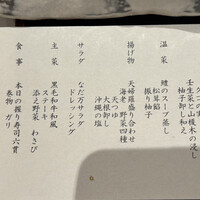 壬生菜と山榎木の浸し
柚子卸し和え
温菜
鰹のスープ蒸し
松茸餡
振り柚子
揚げ物
天婦羅盛り合わせ
海老 野菜四種
天つゆ
大根卸し
沖縄の塩
サラダ
なだ万サラダ
ドレッシング
主菜
黒毛和牛和風
ステーキ
添え野菜 わさび
食事
本日の握り寿司六貫
巻物 ガリ